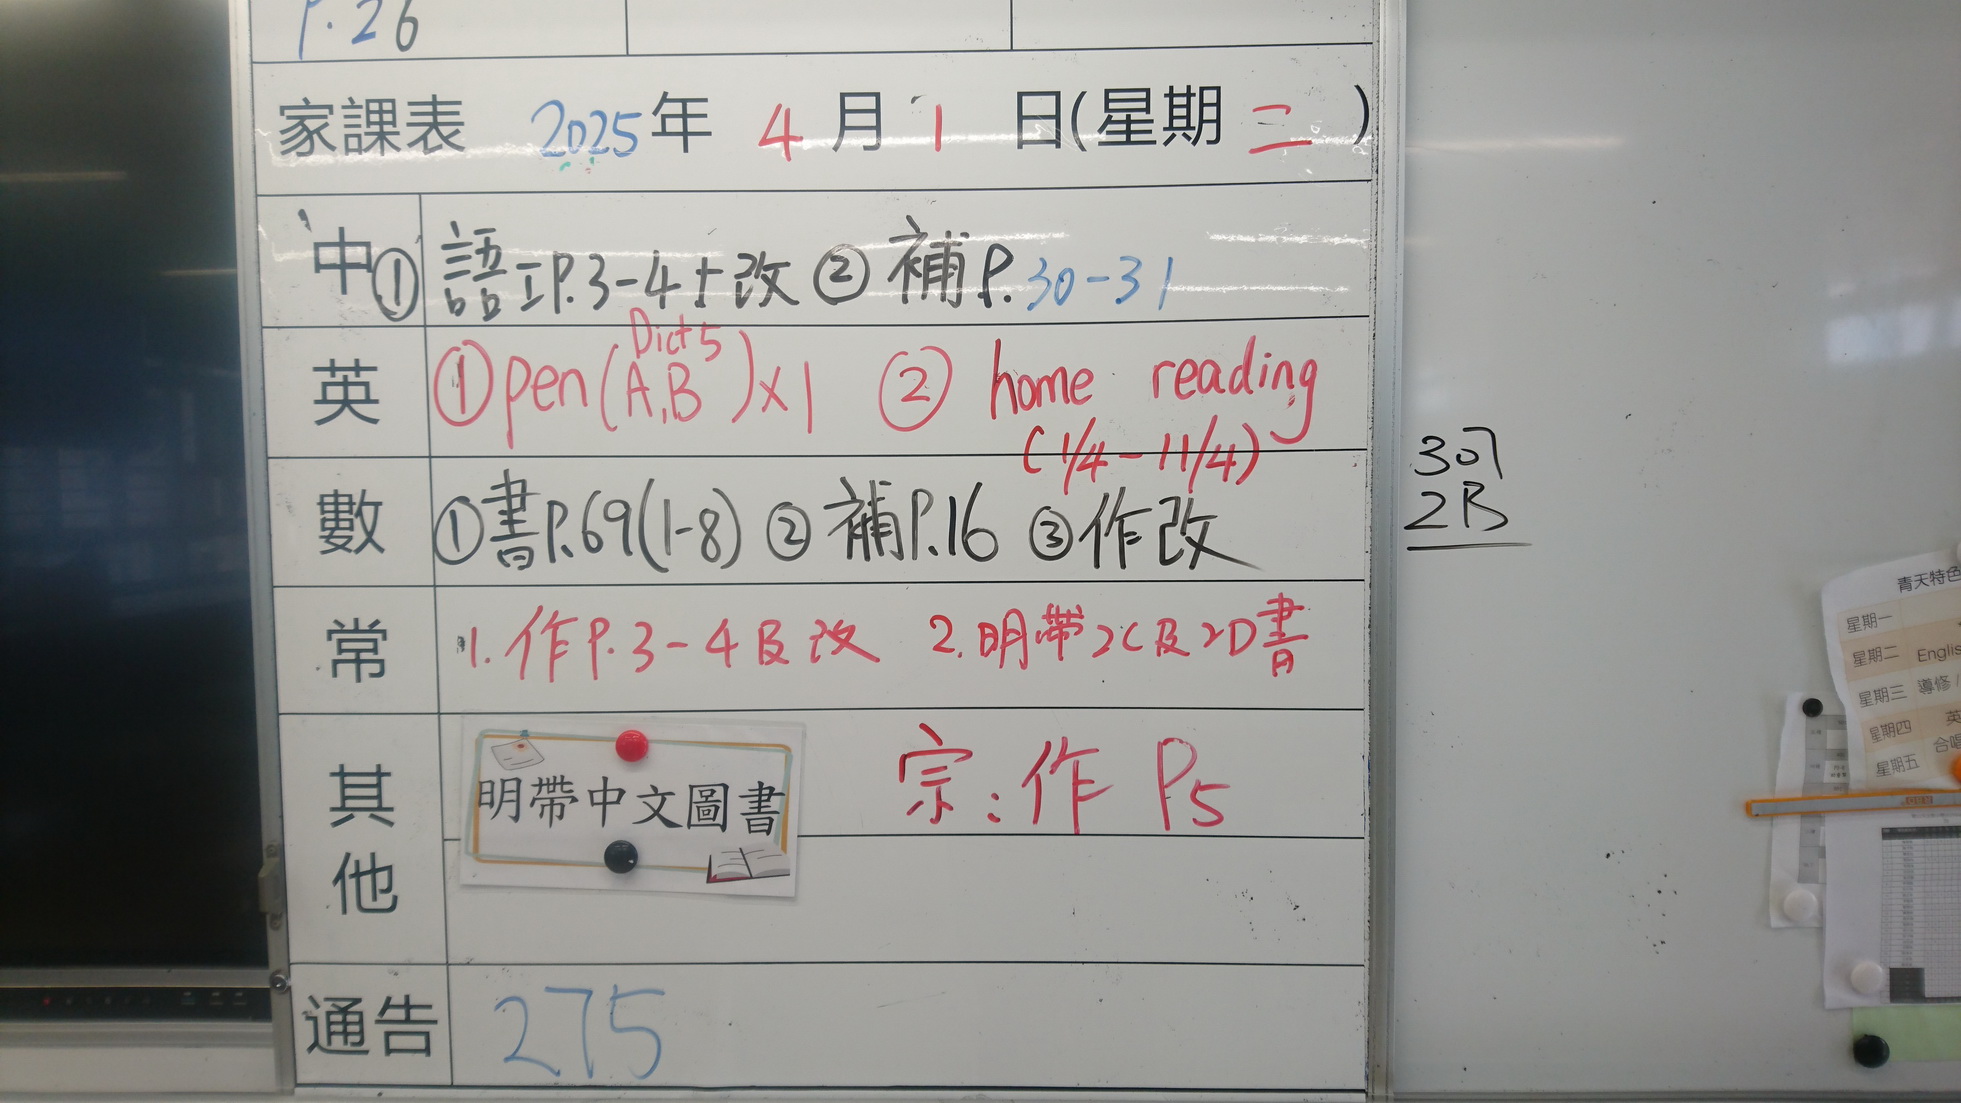 P.26
家課表 2025年 4月1日(星期二)
中 ①語工P.3-4+改 ②補P.30-31
英 ①pen(Dict5 A,B)x1 ② home reading
(1/4-11/4)
數 ①書P.69(1-8) ②補P.16 ③作改
常 1.作P.3-4及改 2.明帶2C及2D書
其他 明帶中文圖書 宗:作 P5
通告 275
307
2B
青天特色
星期一
星期二 Englis
星期三 導修/
星期四 英
星期五 合唱